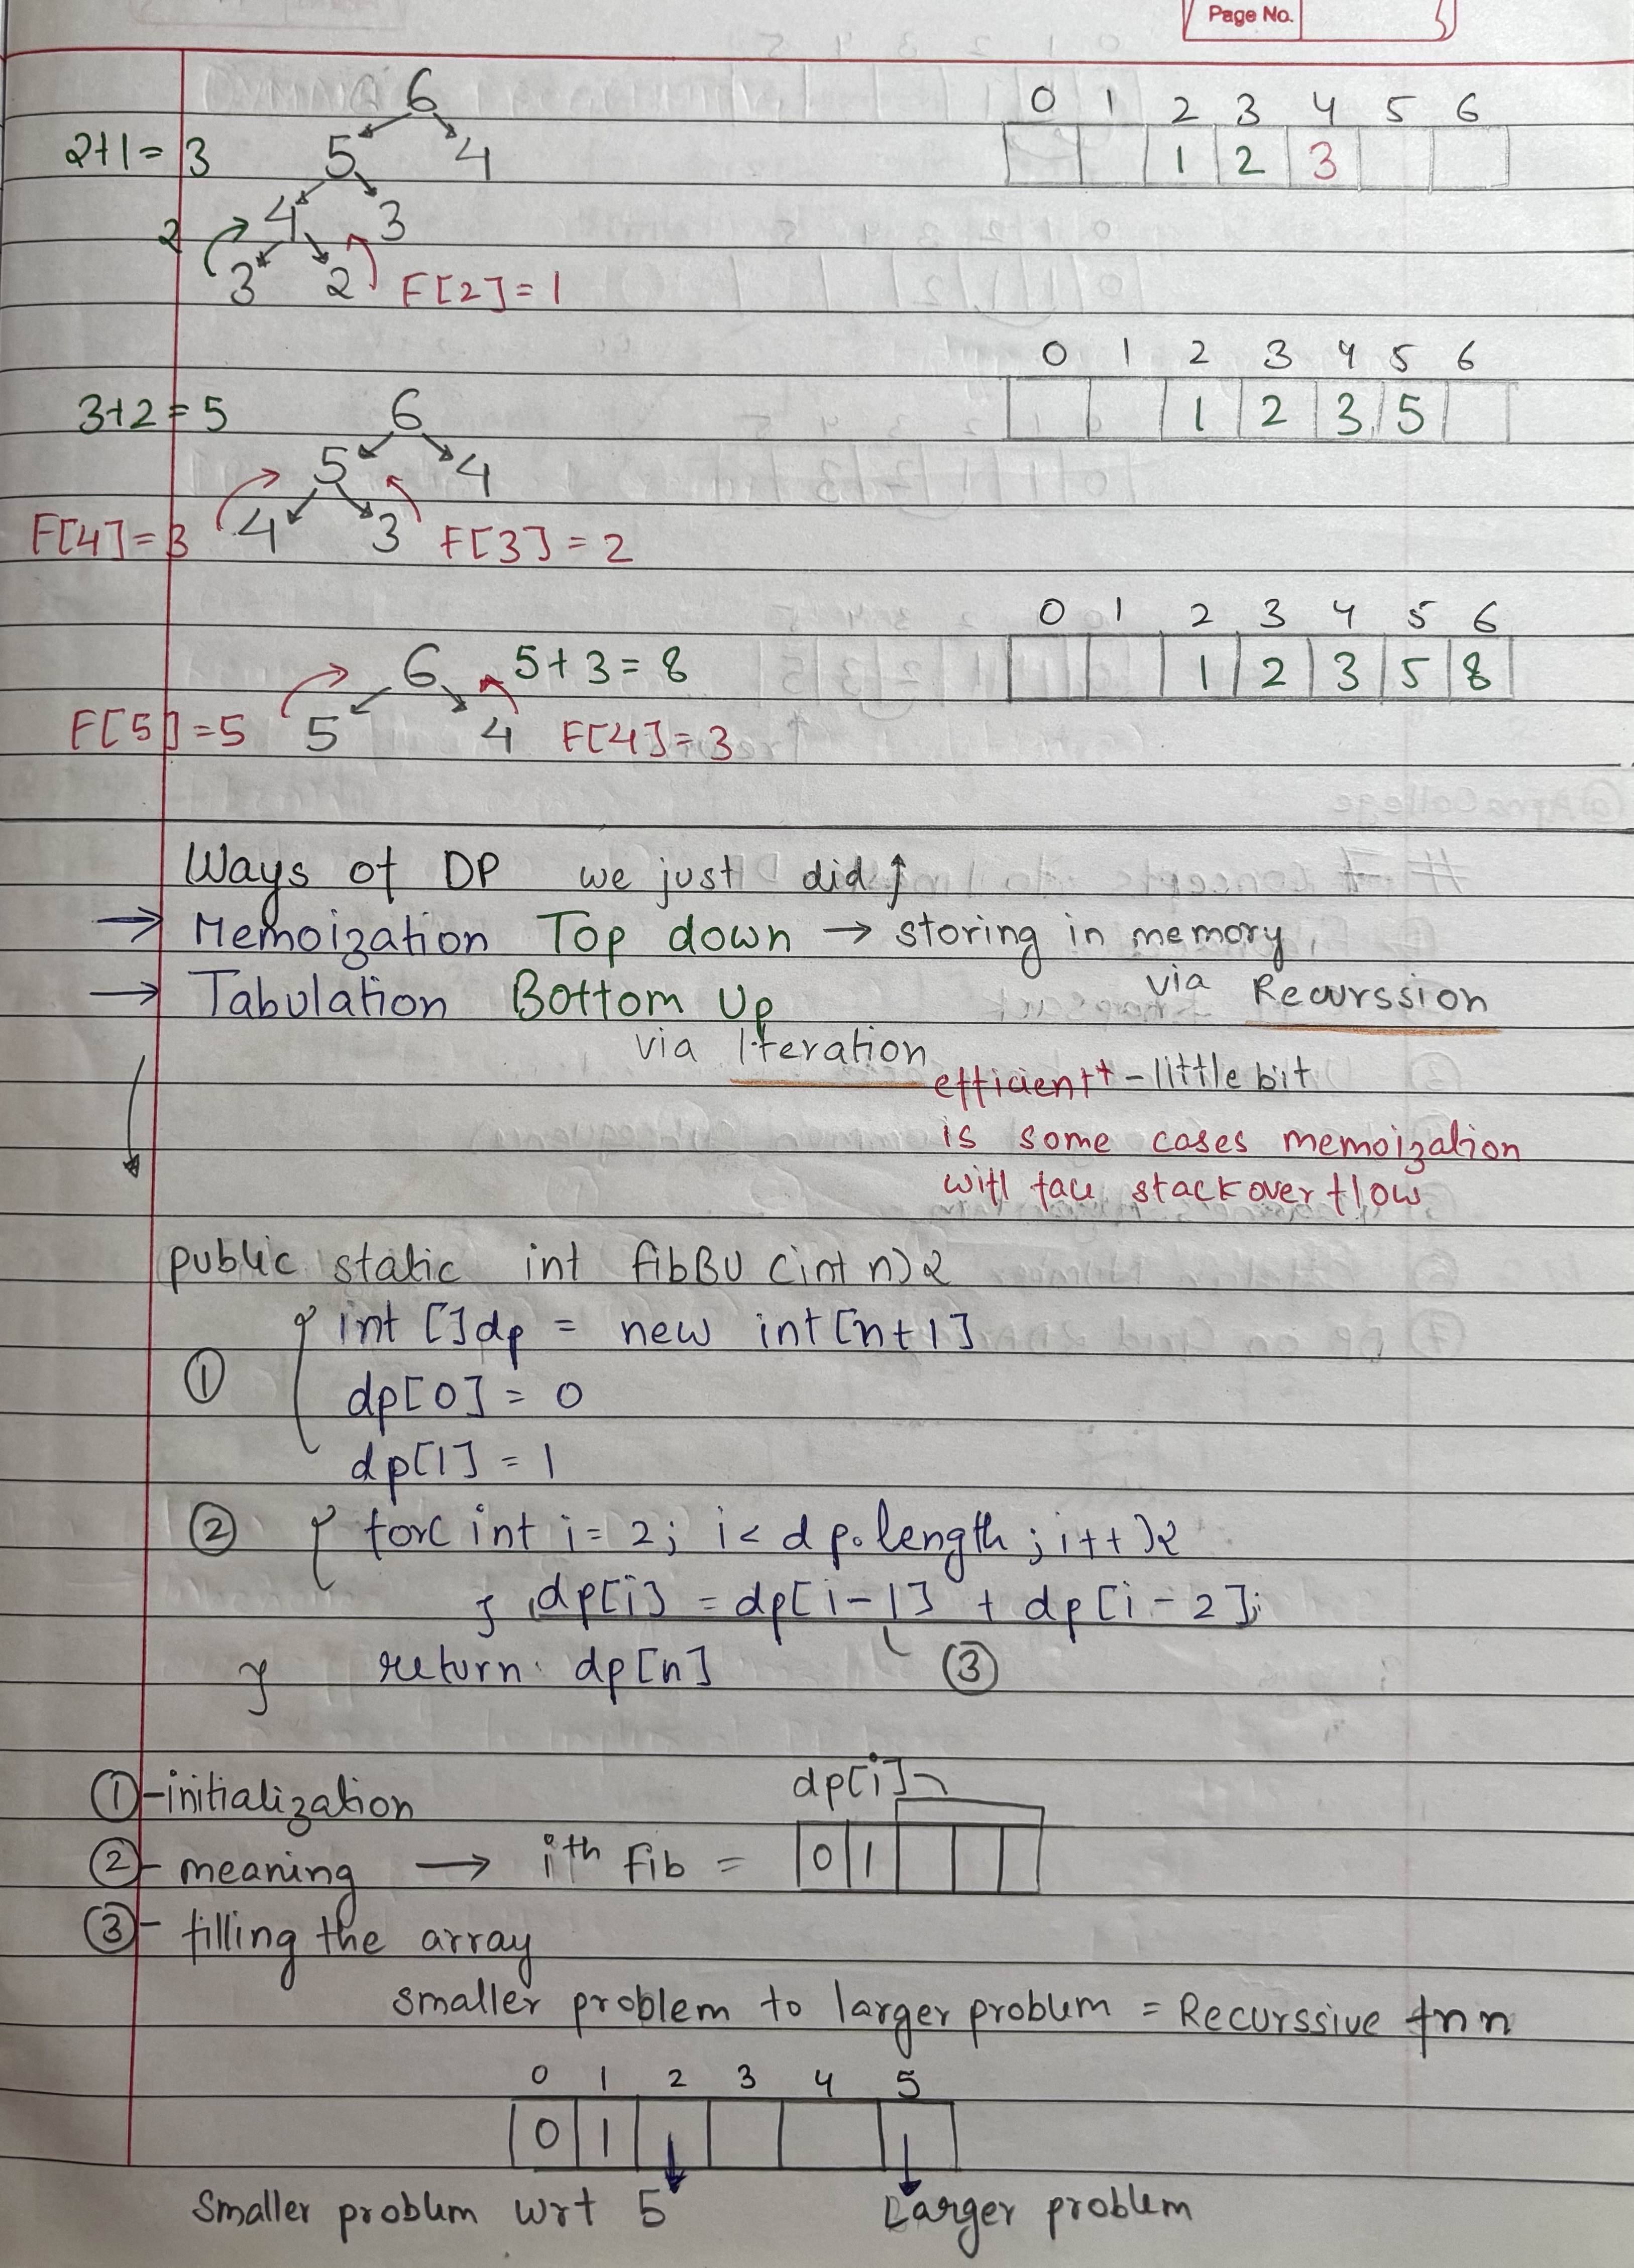 Page No.
6
0 1 2 3 4 5 6
2+1= 3 5 4 1 2 3
2 4 3
3 2 F[2]=1
0 1 2 3 4 5 6
3+2=5 6 1 2 3 5
5 4
F[4]=3 4 3 F[3]=2
0 1 2 3 4 5 6
6 5+3=8 1 2 3 5 8
F[5]=5 5 4 F[4]=3
Ways of DP we just did ↑
→ Memoization Top down → storing in memory
via Recurssion
→ Tabulation Bottom Up
via Iteration
efficient++ - little bit
is some cases memoization
will face stackoverflow
public static int fibBU (int n) {
int []dp = new int[n+1]
① dp[0] = 0
dp[1] = 1
② for( int i= 2; i< dp.length ; i++ ) {
} dp[i] = dp[i-1] + dp[i-2];
} return dp[n] ③
①-initialization dp[i]
②- meaning → ith fib = 0 1
③- filling the array
smaller problem to larger problem = Recurssive fnn
0 1 2 3 4 5
0 1
Smaller problem wrt 5 Larger problem